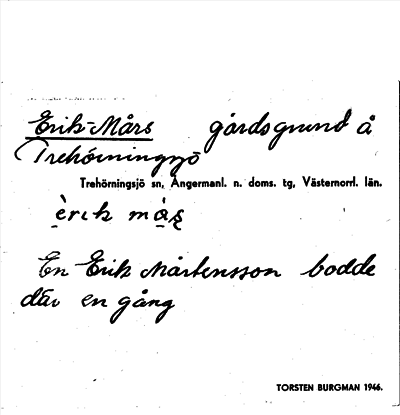 Erik-Mårs gårdsgrund å
Trehörningsjö
Trehörningsjö sn, Ångermanl. n. doms. tg, Västernorrl. län.
èrɩk mà̤ʂ
En Erik Mårtensson bodde
där en gång
TORSTEN BURGMAN 1946.